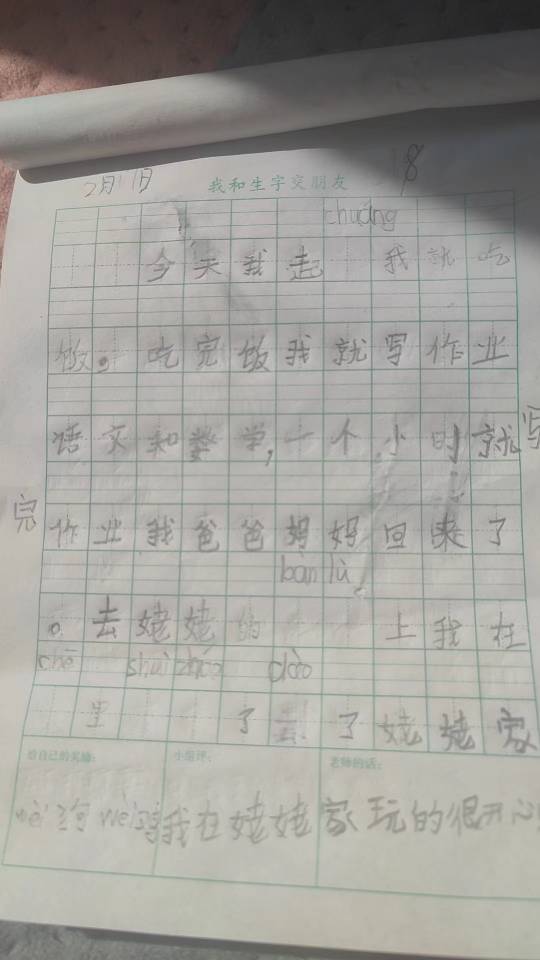 2月1日 我和生字交朋友 18
chuáng
今天我走 我就吃
饭。吃完饭我就写作业
语文和数学,一个小时就写
完作业我爸爸妈妈回来了
bàn lù
。去姥姥的 上我在
chē shuì zháo dào
里 了 了姥姥家
给自己的奖励: 小组评: 老师的话:
我在姥姥家玩的很开心